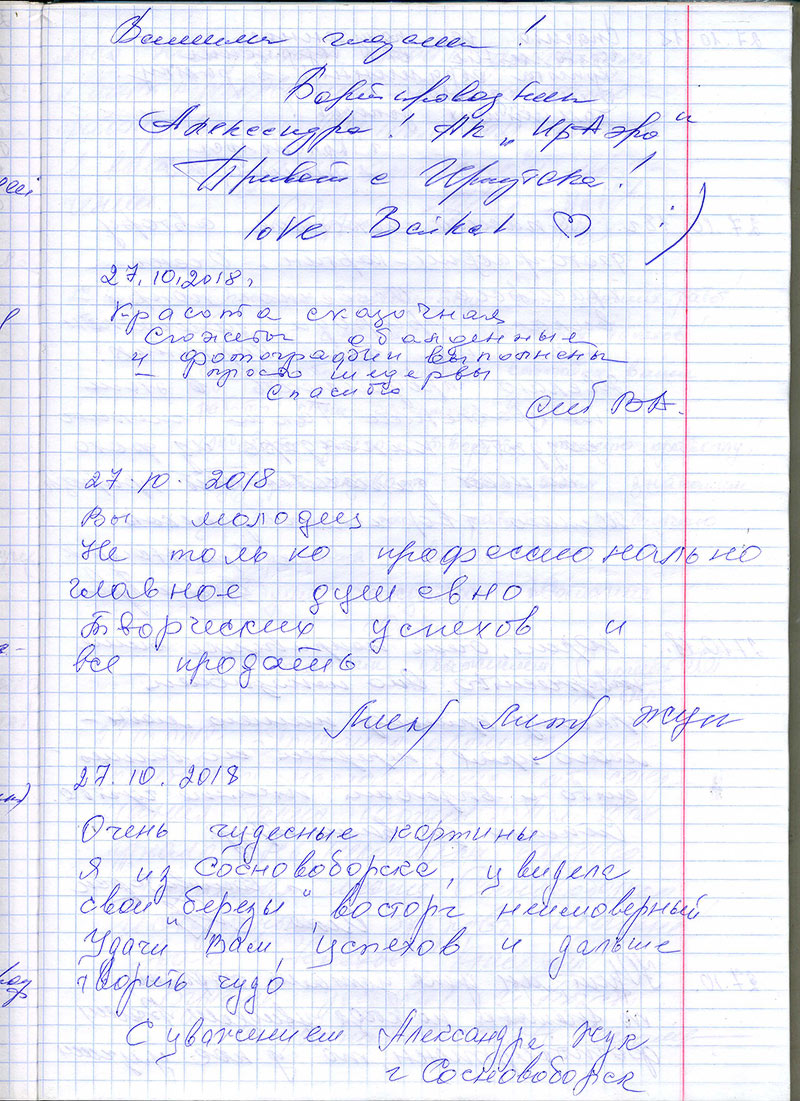 Вашими глазами!
Бортпроводник
Александра! АК „ИрАэро"
Привет с Иркутска!
love Baikal ♡ :)
27.10.2018г
Красота сказочная
Сюжеты обалденные
и фотографии выполнены
– просто шедервы
Спасибо
ВА.
27.10.2018
Вы молодец
Не только профессионально
главное душевно
Творческих успехов и
все продать
27.10.2018
Очень чудесные картины
Я из Сосновоборска, увидела
свои „березы" восторг неимоверный
Удачи Вам, успехов и дальше
творить чудо
С уважением Александра Жук
г Сосновоборск